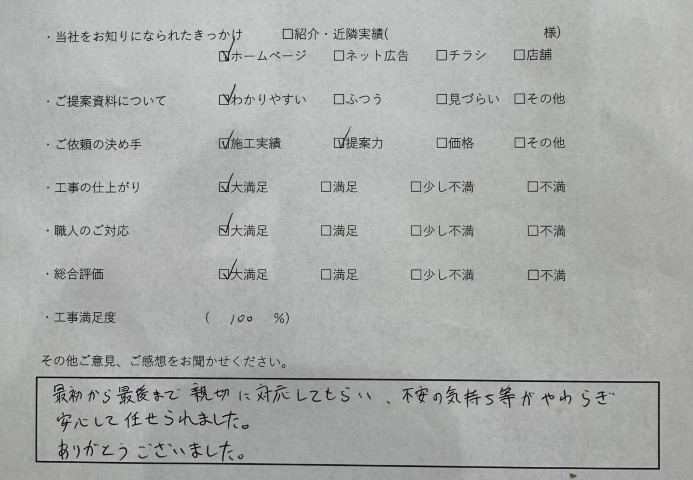 ・当社をお知りになられたきっかけ ☐紹介・近隣実績( 様)
☑ホームページ ☐ネット広告 ☐チラシ ☐店舗
・ご提案資料について ☑わかりやすい ☐ふつう ☐見づらい ☐その他
・ご依頼の決め手 ☑施工実績 ☑提案力 ☐価格 ☐その他
・工事の仕上がり ☑大満足 ☐満足 ☐少し不満 ☐不満
・職人のご対応 ☑大満足 ☐満足 ☐少し不満 ☐不満
・総合評価 ☑大満足 ☐満足 ☐少し不満 ☐不満
・工事満足度 ( 100 %)
その他ご意見、ご感想をお聞かせください。
最初から最後まで親切に対応してもらい、不安の気持ち等がやわらぎ
安心して任せられました。
ありがとうございました。